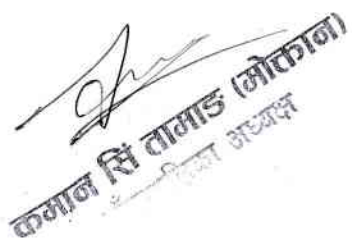 कमान सिं तामाङ (मोक्तान)
अध्यक्ष